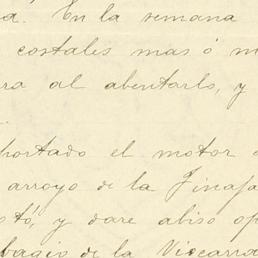 a. En la semana
costales mas ó m
ra al abentarlo, y
portado el motor
arroyo de la Tinaja
tó, y dare abiso op
bagio de la Viscarra